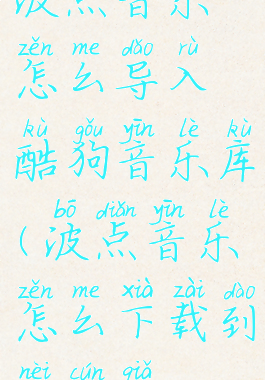 波点音乐
zěn me dǎo rù
怎么导入
kù gǒu yīn lè kù
酷狗音乐库
bō diǎn yīn lè
(波点音乐
zěn me xià zài dào
怎么下载到
nèi cún qiǎ